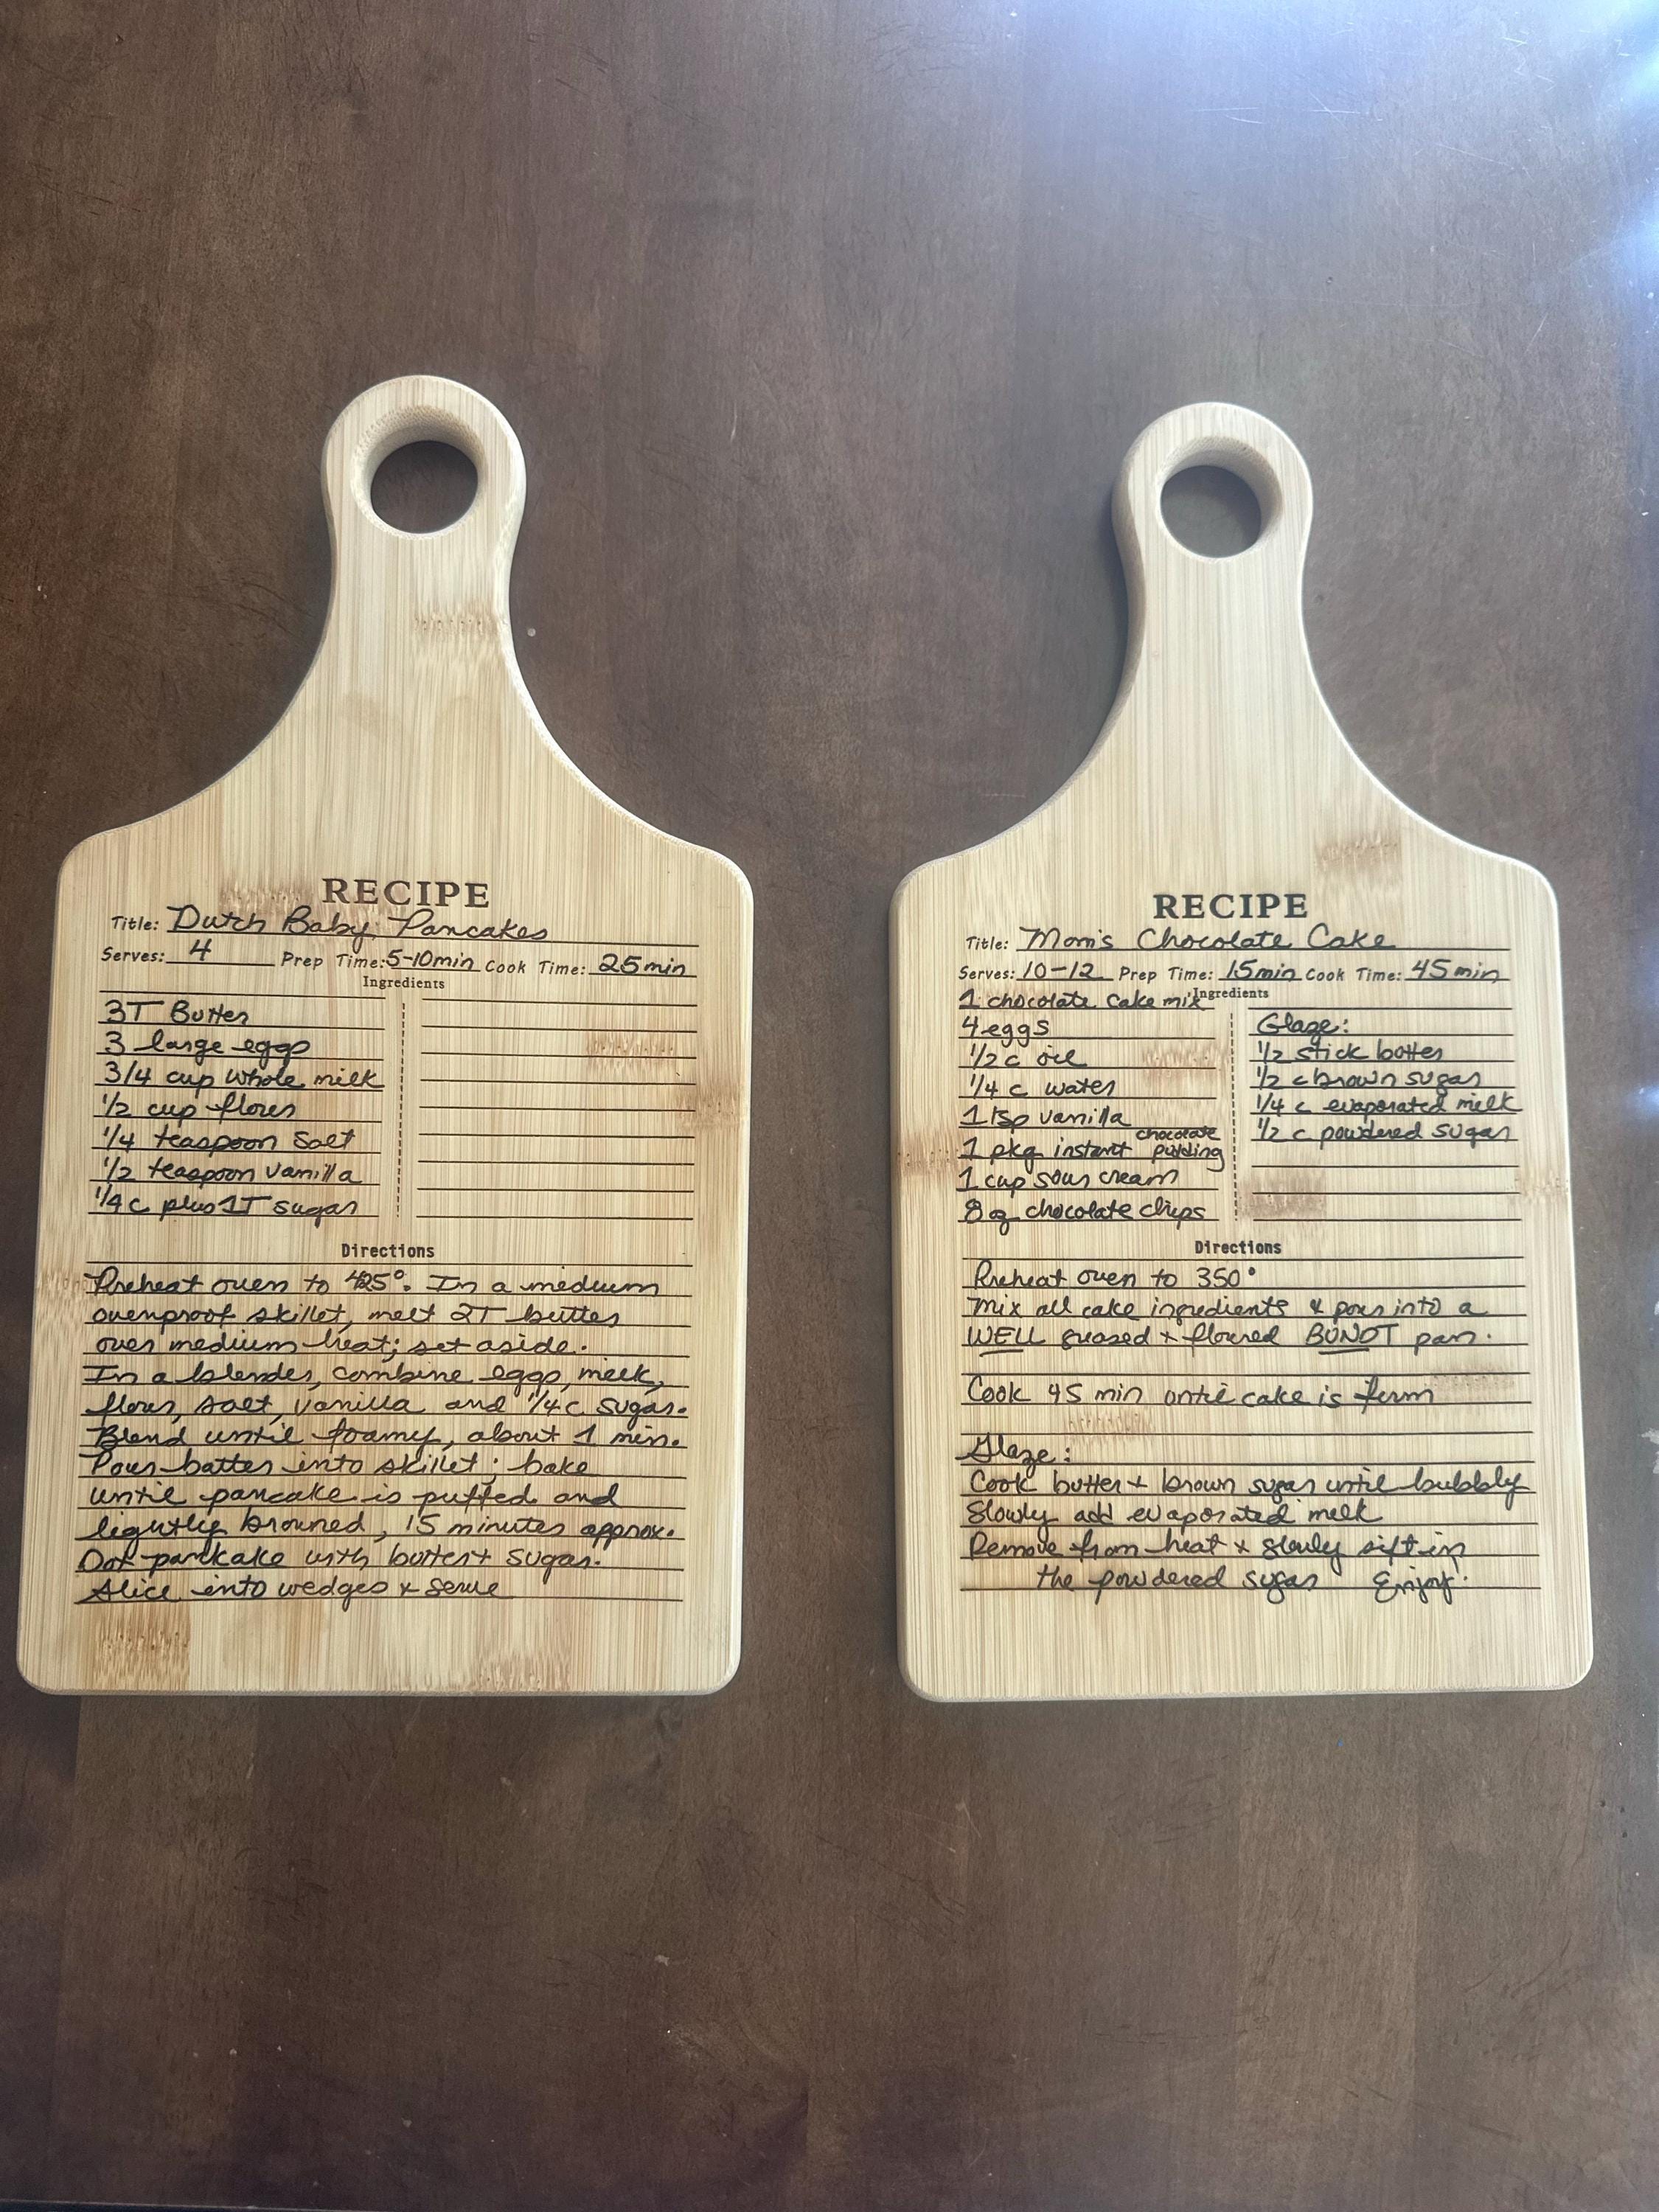 RECIPE
Title: Dutch Baby Pancakes
Serves: 4 Prep Time: 5-10min Cook Time: 25min
Ingredients
3T Butter
3 large eggs
3/4 cup whole milk
1/2 cup flour
1/4 teaspoon salt
1/2 teaspoon vanilla
1/4 c plus 1T sugar
Directions
Preheat oven to 425°. In a medium
ovenproof skillet, melt 2T butter
over medium heat; set aside.
In a blender, combine eggs, milk,
flour, salt, vanilla and 1/4 c sugar.
Blend until foamy, about 1 min.
Pour batter into skillet; bake
until pancake is puffed and
lightly browned, 15 minutes approx.
Dot pankake with butter + sugar.
Slice into wedges & serve
RECIPE
Title: Mom's Chocolate Cake
Serves: 10-12 Prep Time: 15min Cook Time: 45min
Ingredients
1 chocolate cake mix
4 eggs
1/2 c oil
1/4 c water
1 tsp vanilla
1 pkg instant chocolate pudding
1 cup sour cream
8 oz chocolate chips
Glaze:
1/2 stick butter
1/2 c brown sugar
1/4 c evaporated milk
1/2 c powdered sugar
Directions
Preheat oven to 350°
Mix all cake ingredients & pour into a
WELL greased + floured BUNDT pan.
Cook 45 min until cake is firm
Glaze:
Cook butter + brown sugar until bubbly
Slowly add evaporated milk
Remove from heat & slowly sift in
the powdered sugar Enjoy!